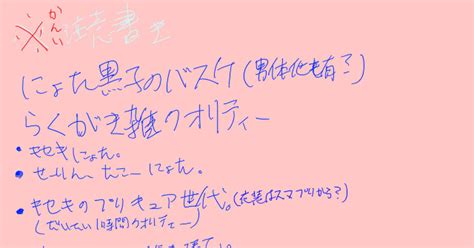 ※かんい注意書き
にょた黒子のバスケ(男体化も有?)
らくがき雑クオリティー
・キセキにょた。
・せーりん、たこーにょた。
・キセキのプリキュア世代。(衣装はスマプリから?)
(だいたい1時間クオリティー)